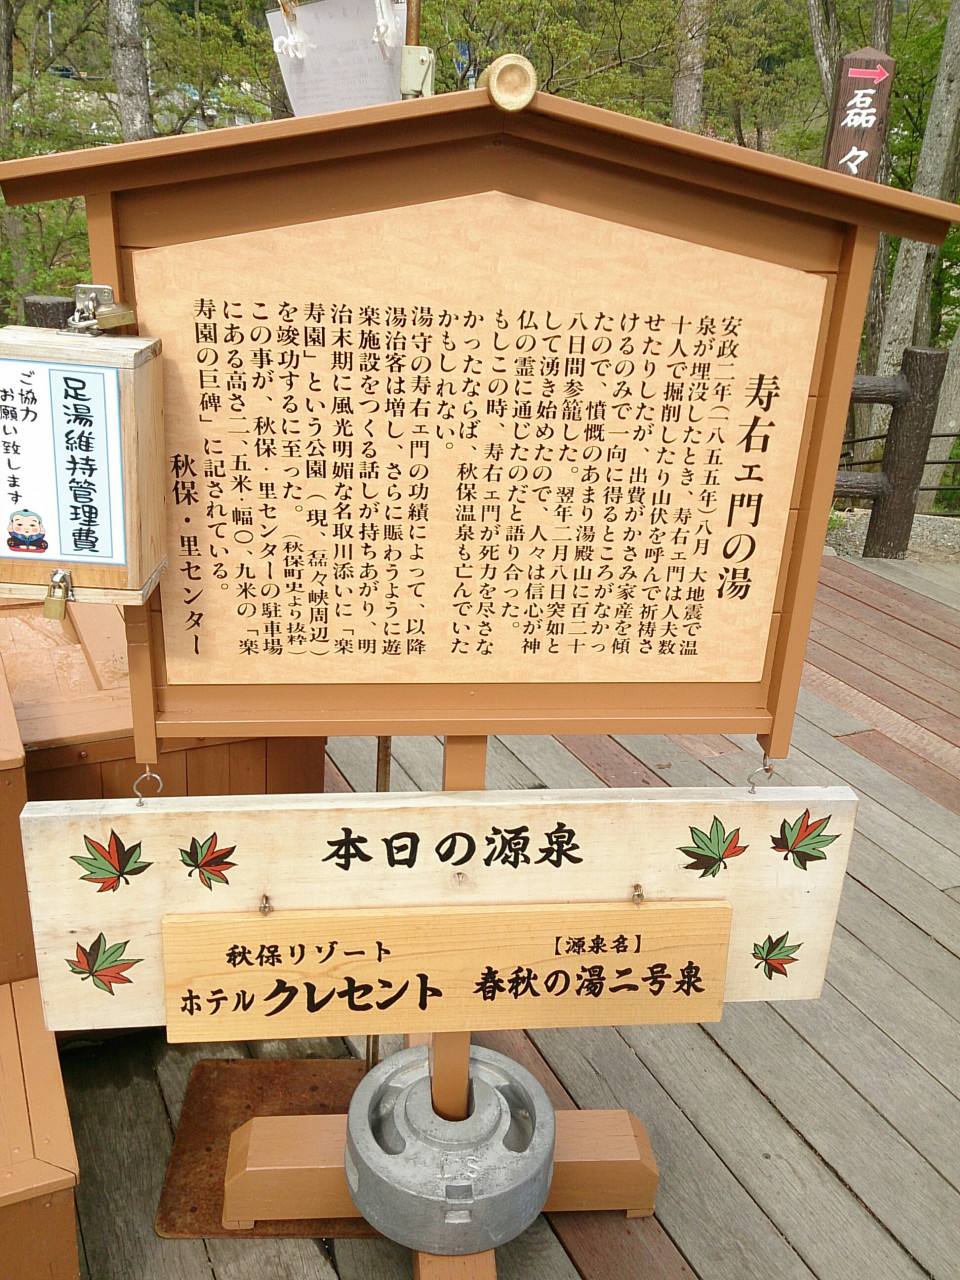 磊々
寿右ェ門の湯
安政二年（一八五五年）八月 大地震で温
泉が埋没したとき、寿右ェ門は人夫数
十人で掘削したり山伏を呼んで祈祷さ
せたりしたが、出費がかさみ家産を傾
けるのみで一向に得るところがなかっ
たので、憤慨のあまり湯殿山に百二十
八日間参籠した。翌年二月八日突如と
して湧き始めたので、人々は信心が神
仏の霊に通じたのだと語り合った。
もしこの時、寿右ェ門が死力を尽さな
かったならば、秋保温泉も亡んでいた
かもしれない。
湯守の寿右ェ門の功績によって、以降
湯治客は増し、さらに賑わうように遊
楽施設をつくる話しが持ちあがり、明
治末期に風光明媚な名取川添いに「楽
寿園」という公園（現、磊々峡周辺）
を竣功するに至った。（秋保町史より抜粋）
この事が、秋保・里センターの駐車場
にある高さ二、五米・幅〇、九米の「楽
寿園の巨碑」に記されている。
秋保・里センター
足湯維持管理費
ご協力
お願い致します
本日の源泉
秋保リゾート
ホテルクレセント
【源泉名】
春秋の湯二号泉